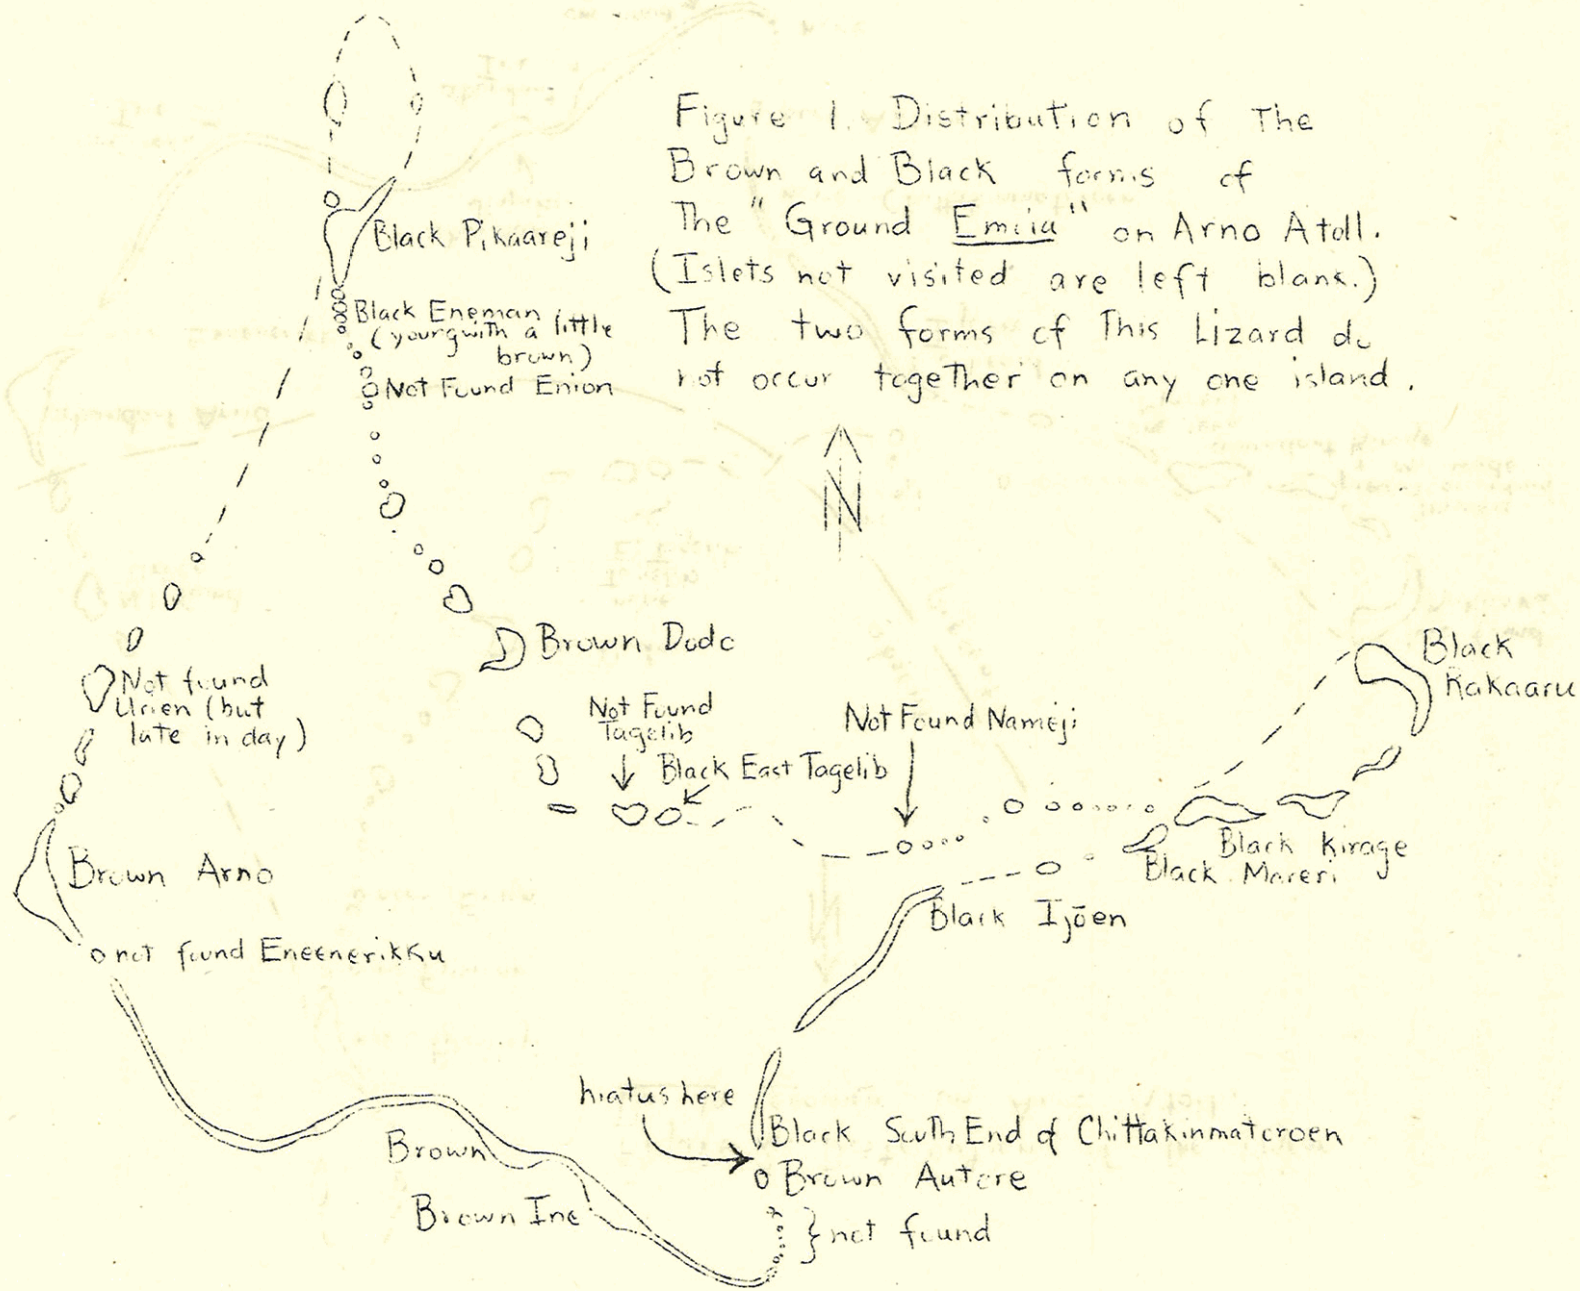 Figure 1. Distribution of The
Brown and Black forms of
The "Ground Emiia" on Arno Atoll.
(Islets not visited are left blank.)
The two forms of This Lizard do
not occur together on any one island.
Black Pikaareji
Black Eneman
(young with a little
brown)
Not Found Enion
N
Brown Dodo
Not found
Urien (but
late in day)
Not Found
Tagelib
Black East Tagelib
Not Found Nameji
Black
Kakaaru
Black Kirage
Black Mareri
Black Ijōen
Brown Arno
not found Eneenerikku
hiatus here
Black South End of Chittakinmatoroen
Brown Autore
}not found
Brown
Brown Ine